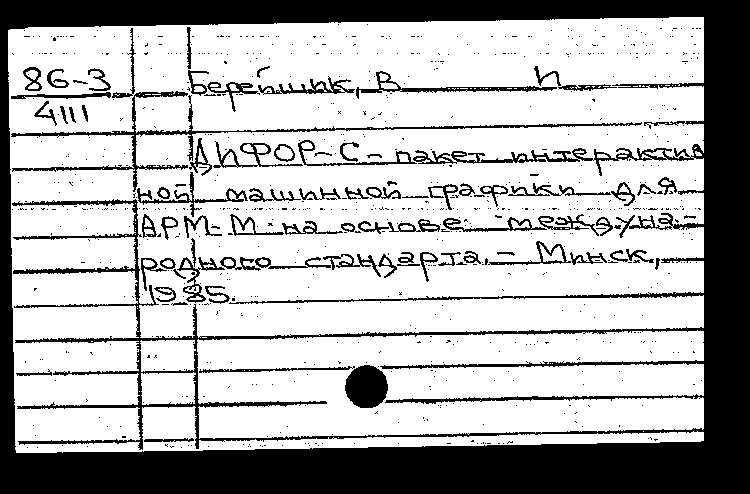 86-3 Берейшик, В и
4111
ДИФОР-С - пакет интерактив
ной машинной графики для
АРМ-М на основе междуна-
родного стандарта. - Минск,
1985.